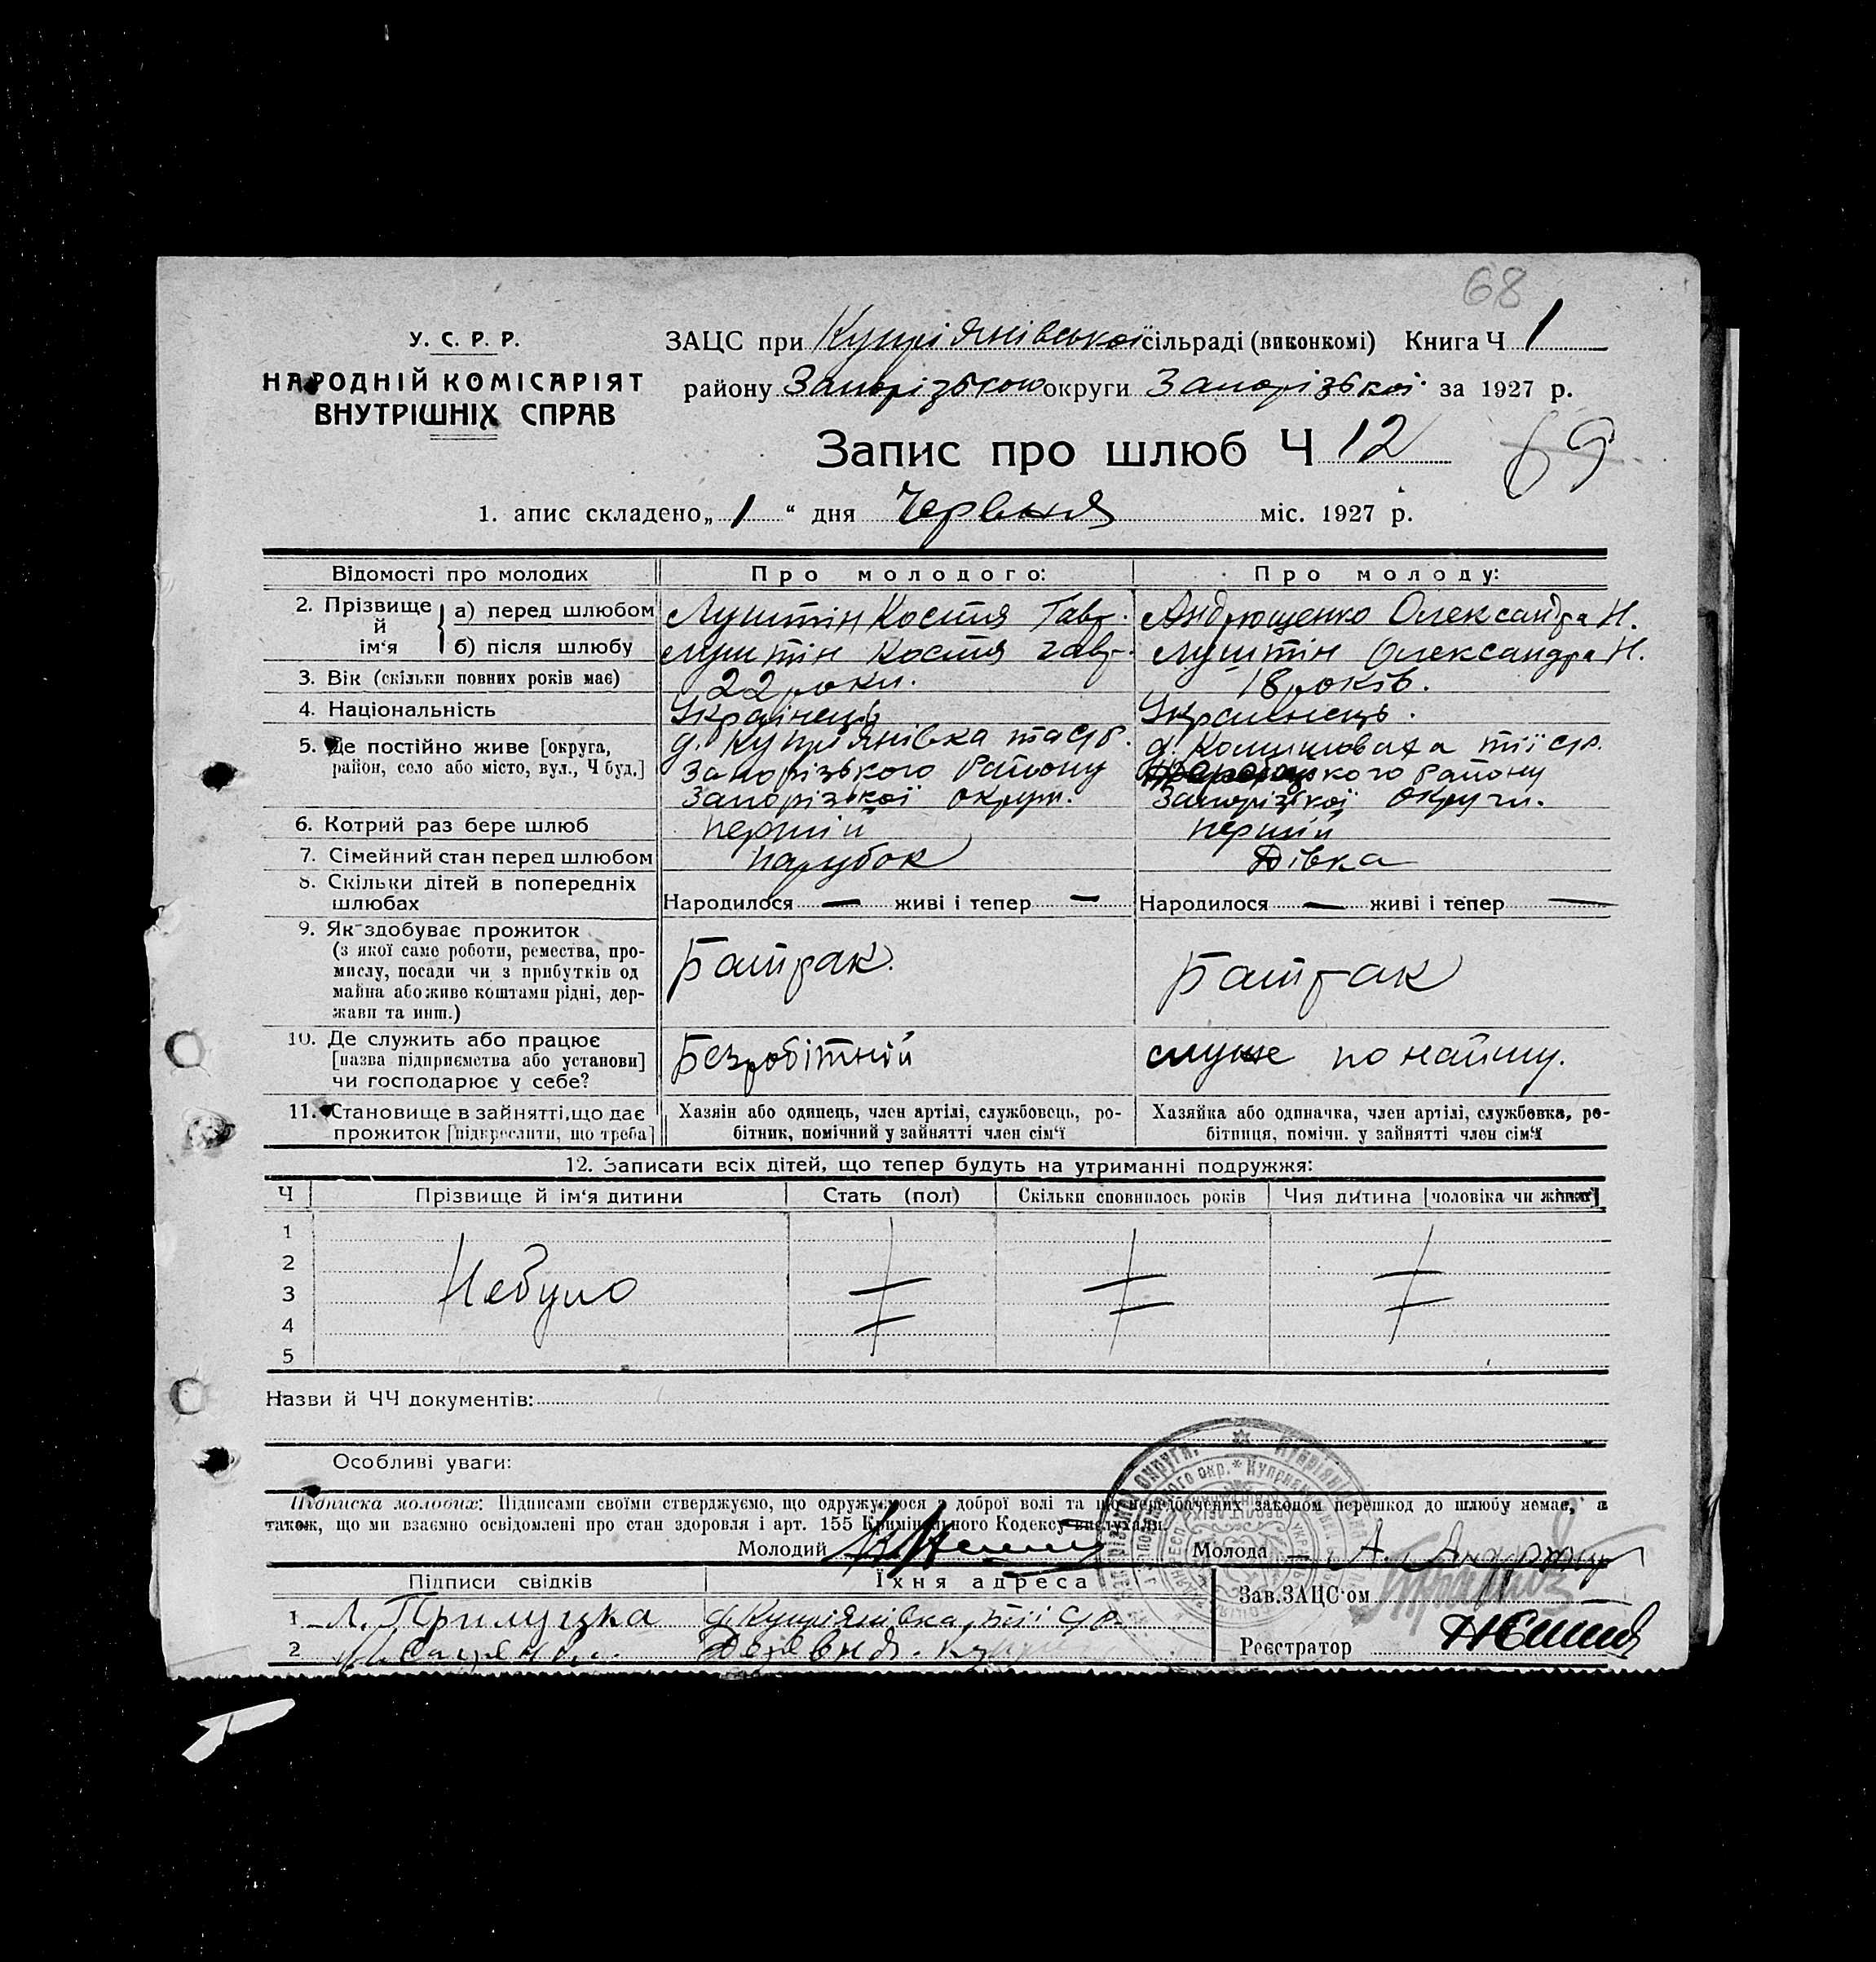 68
У. С. Р. Р.
НАРОДНІЙ КОМІСАРІЯТ
ВНУТРІШНІХ СПРАВ
ЗАЦС при Купріянівської сільраді (виконкомі) Книга Ч 1
району Запорізького округи Запорізької за 1927 р.
Запис про шлюб Ч 12
69
1. апис складено „ 1 “ дня Червня міс. 1927 р.
Відомості про молодих Про молодого: Про молоду:
2. Прізвище й ім‘я а) перед шлюбом Луштін Костя Гавр. Андрющенко Олександра Н.
б) після шлюбу Луштін Костя Гавр. Луштін Олександра Н.
3. Вік (скільки повних років має) 22 роки. 18 років.
4. Національність Українець Українець.
5. Де постійно живе [округа, район, село або місто, вул., Ч буд.]
д. Купріянівка та С/р.
Запорізького Району
Запорізької округи.
д. Комишоваха тії С/р.
кого Району
Запорізької Округи.
6. Котрий раз бере шлюб перший перший
7. Сімейний стан перед шлюбом парубок Дівка
8. Скільки дітей в попередніх шлюбах Народилося — живі і тепер — Народилося — живі і тепер —
9. Як здобуває прожиток
(з якої саме роботи, ремества, про-
мислу, посади чи з прибутків од
майна або живе коштами рідні, дер-
жави та инш.)
Батрак. Батрак
10. Де служить або працює
[назва підприємства або установи]
чи господарює у себе?
Безробітній служе по найму.
11. Становище в зайнятті, що дає
прожиток [підкреслити, що треба]
Хазяїн або одинець, член артілі, службовець, ро-
бітник, помічний у зайнятті член сім‘ї
Хазяйка або одиначка, член артілі, службовка, ро-
бітниця, помічн. у зайнятті член сім‘ї
12. Записати всіх дітей, що тепер будуть на утриманні подружжя:
Ч Прізвище й ім‘я дитини Стать (пол) Скільки сповнилось років Чия дитина [чоловіка чи жінки]
1
2
3 Небуло
4
5
Назви й ЧЧ документів:
Особливі уваги:
Підписка молодих: Підписами своїми стверджуємо, що одружуємося з доброї волі та що передбачених законом перешкод до шлюбу немає, а
також, що ми взаємно освідомлені про стан здоровля і арт. 155 Кримінального Кодексу вислухали.
Молодий Молода А.
Підписи свідків Їхня адреса Зав. ЗАЦС‘ом
1 Л. Прилуцка д. Купріянівка тії С/р.
2 Деревня. Реєстратор